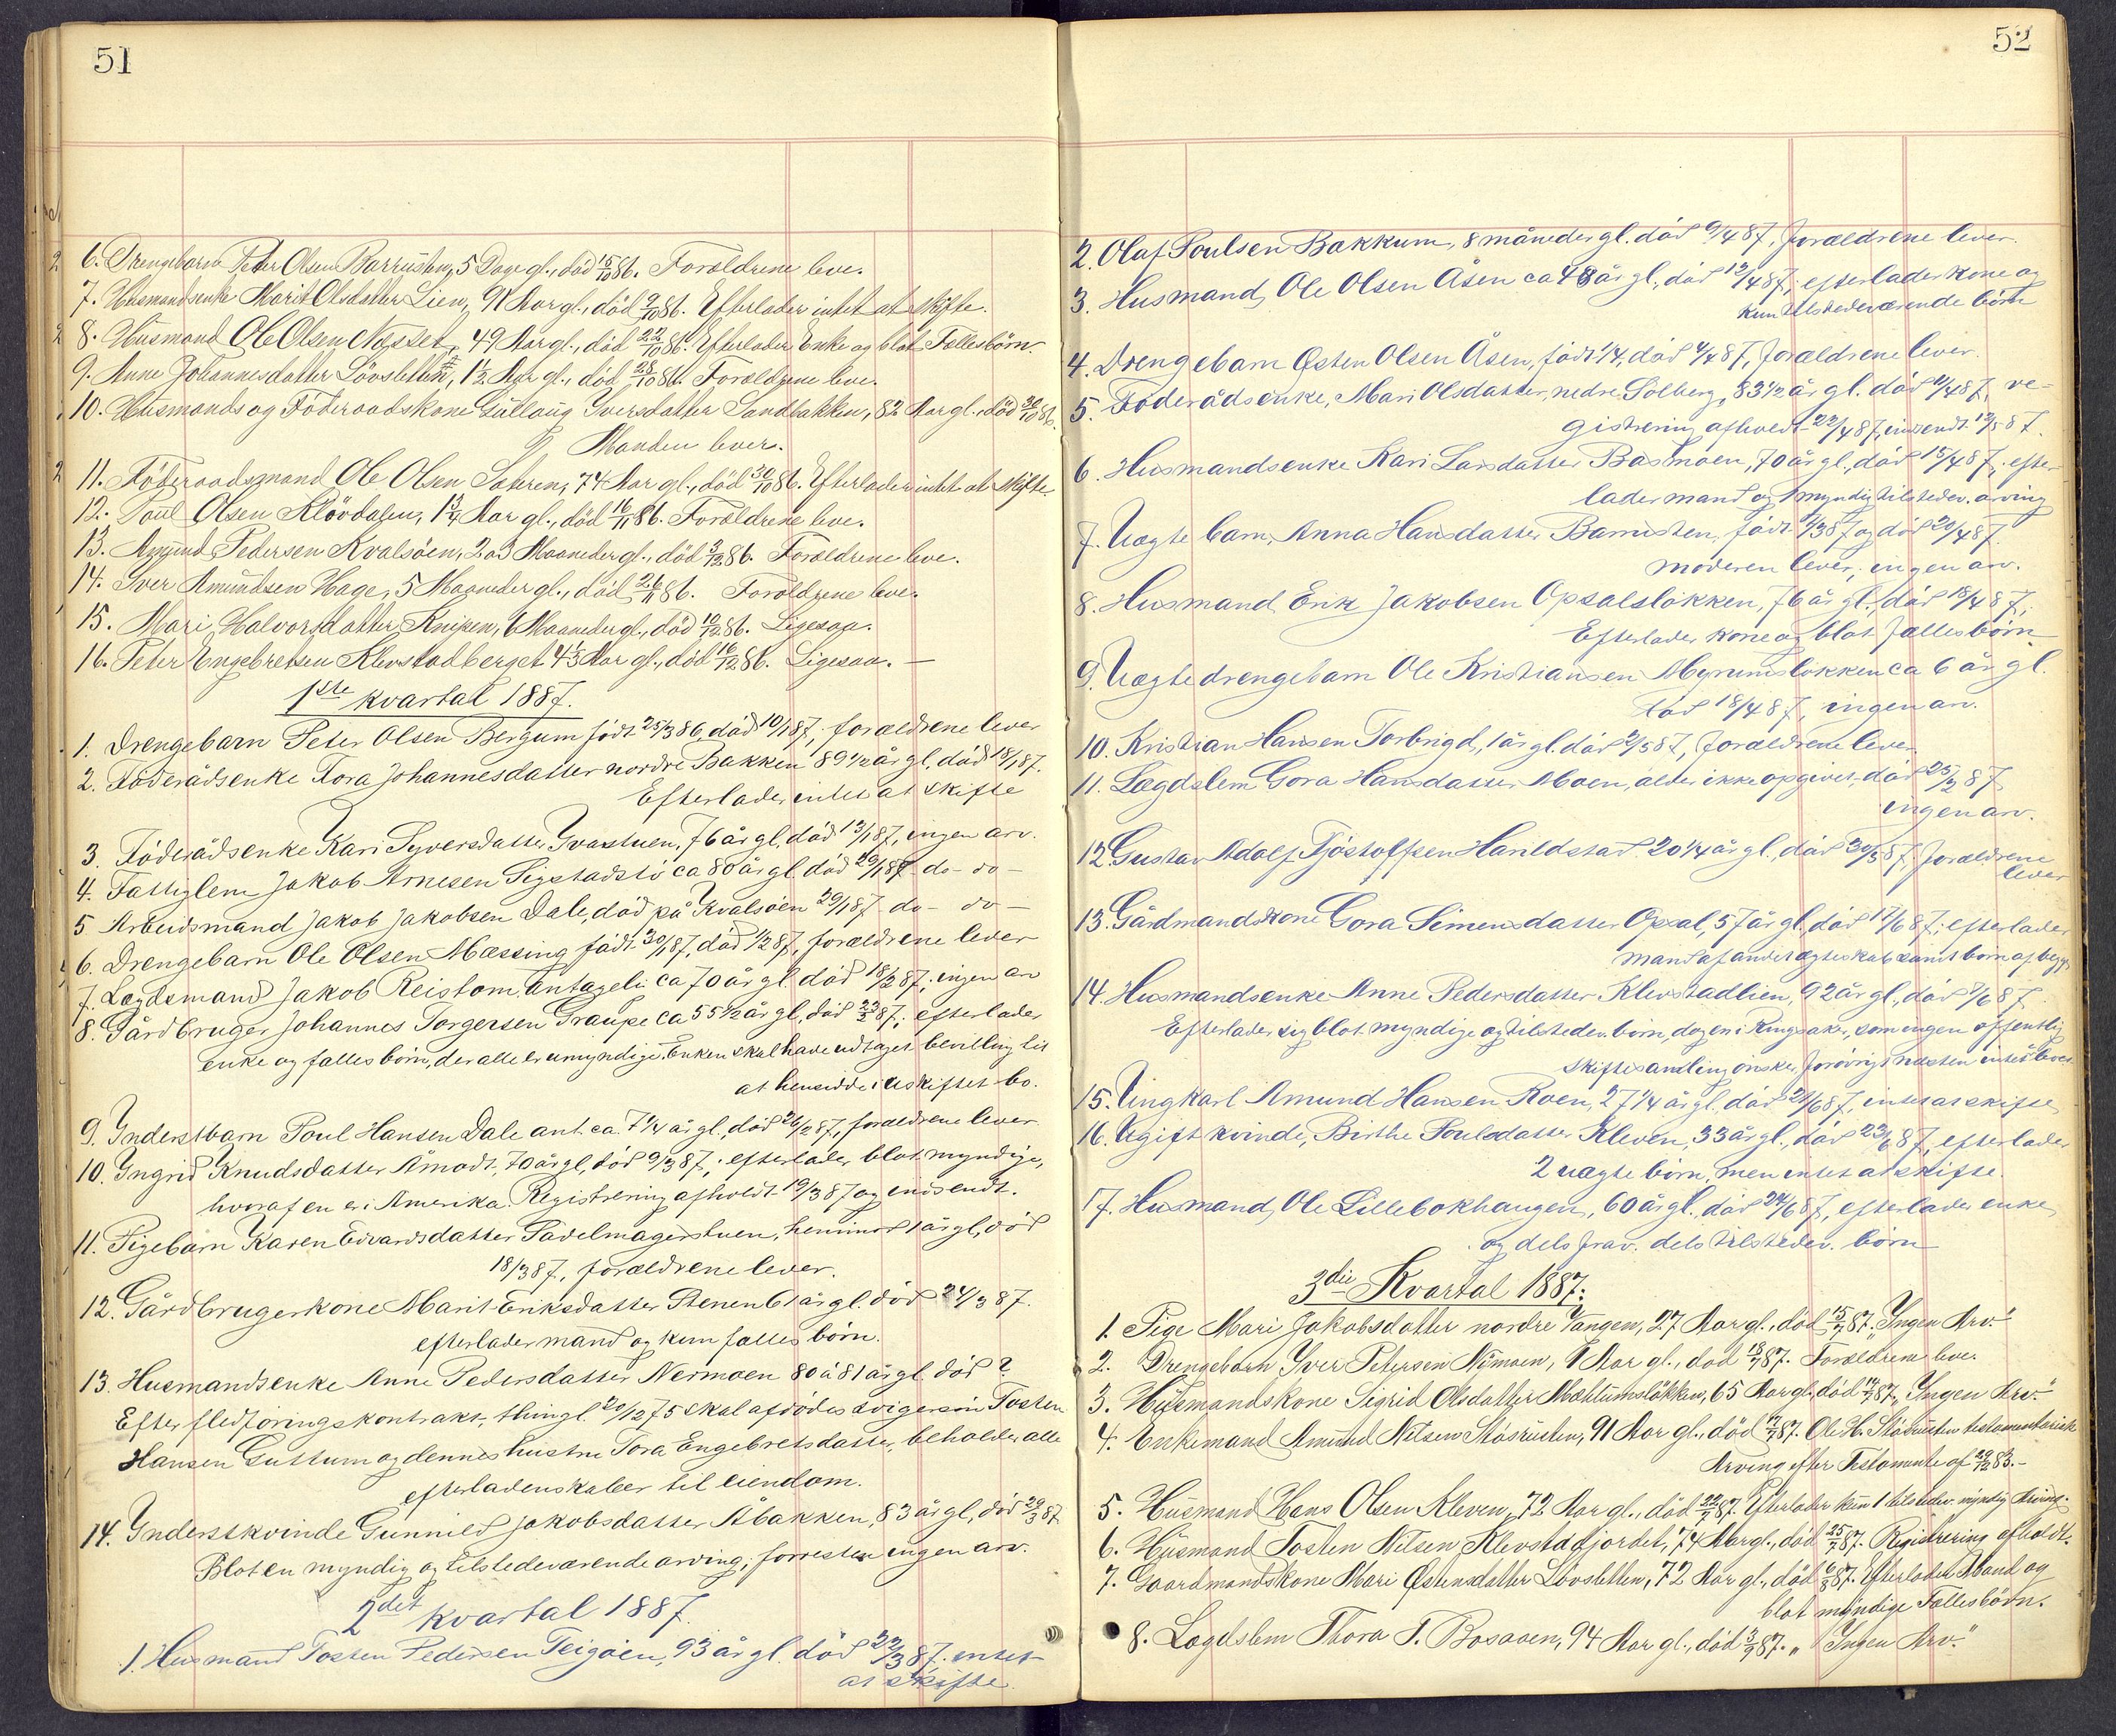 51
6. Drengebarn Peter Olsen Barrusten, 5 Dage gl., död 15/10 86. Forældrene leve.
7. Husmandsenke Marit Olsdatter Lien, 91 Aar gl., död 2/10 86. Efterlader intet at skifte.
8. Husmand Ole Olsen Næsset, 49 Aar gl., död 22/10 86. Efterlader Enke og blot Fællesbörn.
9. Anne Johannesdatter Lövsletten, 1 1/2 Aar gl., död 28/10 86. Forældrene leve.
10. Husmands og Föderaadskone Gullaug Iversdatter Sandbakken, 82 Aar gl., död 30/10 86.
Manden lever.
11. Föderaadsmand Ole Olsen Sateren, 74 Aar gl., död 30/10 86. Efterlader intet at skifte.
12. Paul Olsen Klövdalen, 1 3/4 Aar gl., död 16/11 86. Forældrene leve.
13. Amund Pedersen Kvalsöen, 2 a 3 Maaneder gl., död 3/12 86. Forældrene leve.
14. Iver Amundsen Hage, 5 Maaneder gl., död 26/11 86. Forældrene leve.
15. Mari Halvorsdatter Knipen, 6 Maaneder gl., död 10/12 86. Ligesaa.
16. Peter Engebretsen Klevstadberget 4 1/3 Aar gl., död 16/12 86. Ligesaa. —
1ste kvartal 1887.
1. Drengebarn Peter Olsen Bergum födt 25/3 86, död 10/1 87; forældrene lever
2. Föderådsenke Tora Johannesdatter nordre Bakken 89 1/2 år gl. död 18/1 87.
Efterlader intet at skifte
3. Föderådsenke Kari Syversdatter Graastuen, 76 år gl, död 13/1 87, ingen arv.
4. Fattiglem Jakob Arnesen Sigstadstö ca 80 år gl. död 20/1 87 do- do-
5 Arbeidsmand Jakob Jakobsen Dale, död på Kvalsöen 29/1 87 do- do-
6. Drengebarn Ole Olsen Mæssing födt 30/1 87, död 1/2 87, forældrene lever
7. Lægdsmand Jakob Reistom antagelig ca 70 år gl. död 18/2 87; ingen arv
8. Gårdbruger Johannes Torgersen Graupe ca 55 1/2 år gl, död 23/2 87; efterlader
enke og fælles börn, der alle er umyndige. Enken skal have udtaget bevilling til
at hensidde i uskiftet bo.
9. Inderstbarn Poul Hansen Dale ant. ca. 7 1/4 år gl., död 26/2 87, forældrene lever
10. Ingrid Knudsdatter Åmodt, 70 år gl, död 9/3 87; efterlader blot myndige,
hvoraf en er i Amerika. Registrering afholdt 19/3 87 og indsendt.
11. Pigebarn Karen Edvardsdatter Sadelmagerstuen, henimod 1 år gl, död
18/3 87, forældrene lever.
12. Gårdbrugerkone Marit Eriksdatter Stenen 61 år gl. död 24/3 87.
efterlader mand og kun fælles börn.
13. Husmandsenke Anne Pedersdatter Nermoen 80 à 81 år gl. död ?
Efter fledföringskontrakt, thingl. 20/12 75 skal afdödes svigersön Tosten
Hansen Guttum og dennes hustru Tora Engebretsdatter, beholde alle
efterladenskaber til eiendom.
14. Inderstkvinde Gunnild Jakobsdatter Åbakken, 83 år gl, död 29/3 87.
Blot en myndig og tilstedeværende arving; forresten ingen arv.
2det kvartal 1887.
1. Husmand Tosten Pedersen Teigöen, 93 år gl. död 22/3 87. intet
at skifte.
52
2. Olaf Poulsen Bakkum, 8 måneder gl. död 9/4 87, forældrene lever.
3. Husmand Ole Olsen Åsen ca 48 år gl., död 12/4 87; efterlader kone og
kun tilstedeværende börn
4. Drengebarn Østen Olsen Åsen, födt 1/4, död 4/4 87, forældrene lever.
5. Föderådsenke, Mari Olsdatter, nedre Solberg, 83 1/2 år gl. död 11/4 87, re-
gistrering afholdt 22/4 87, indsendt 12/5 87.
6. Husmandsenke Kari Larsdatter Basmoen, 70 år gl, död 15/4 87; efter-
lader mand og 1 myndig tilstedev. arving
7. Uægte barn, Anna Hansdatter Barrusten, födt 9/3 87 og död 20/4 87.
moderen lever, ingen arv.
8. Husmand Erik Jakobsen Opsalslökken, 76 år gl., död 18/4 87;
Efterlader kone og blot fælles börn
9. Uægte drengebarn Ole Kristiansen Myrumslökken ca 6 år gl.
död 18/4 87, ingen arv.
10. Kristian Hansen Torbrigd, 1 år gl. död 2/5 87, forældrene lever.
11. Lægdslem Gora Hansdatter Moen, alder ikke opgivet, död 25/2 87
ingen arv.
12 Gustav Adolf Tjöstolfsen Harildstad 20 1/4 år gl., död 30/5 87, forældrene
lever
13. Gårdmandskone Gora Simensdatter Opsal, 57 år gl, död 17/6 87; efterlader
mand af andet ægteskab samt börn af begge
14. Husmandsenke Anne Pedersdatter Klevstadlien, 92 år gl, död 9/6 87.
Efterlader sig blot myndige og tilstedev. börn, dog en i Ringsaker, som ingen offentlig
skiftesamling önsker, forövrigt næsten intet bo.
15. Ungkarl Amund Hansen Roen, 27 1/4 år gl. död 22/6 87, intet at skifte
16. Ugift kvinde, Birthe Poulsdatter Kleven, 33 år gl., död 23/6 87, efterlader
2 uægte börn, men intet at skifte.
17. Husmand, Ole Lillebokhaugen, 60 år gl, död 24/6 87, efterlader enke
og dels frav. dels tilstedev. börn
3die Kvartal 1887:
1. Pige Mari Jakobsdatter nordre Vangen, 27 Aar gl., död 15/7 87. "Ingen Arv."
2. Drengebarn Iver Petersen Nymoen, 1 Aar gl., död 18/7 87. Forældrene leve.
3. Husmandskone Sigrid Olsdatter Mæhlumslökken, 65 Aar gl, död 14/7 87, "Ingen Arv."
4. Enkemand Amund Nilsen Stösrusten, 91 Aar gl., död 17/7 87. Ole H. Stösrusten testamentarisk
Arving efter Testamente af 29/12 83.-
5. Husmand Hans Olsen Kleven, 72 Aar gl., död 22/7 87. Efterlader kun 1 tilstedev. myndig Arving.
6. Husmand Tosten Nilsen Klevstadfjordet, 74 Aar gl., död 25/7 87. Registrering afholdt.
7. Gaardmandskone Mari Østensdatter Lövsletten, 72 Aar gl., död 6/8 87. Efterlader Mand og
blot myndige Fællesbörn.
8. Lægdslem Thora T. Bosaaen, 94 Aar gl., död 3/9 87. "Ingen Arv."